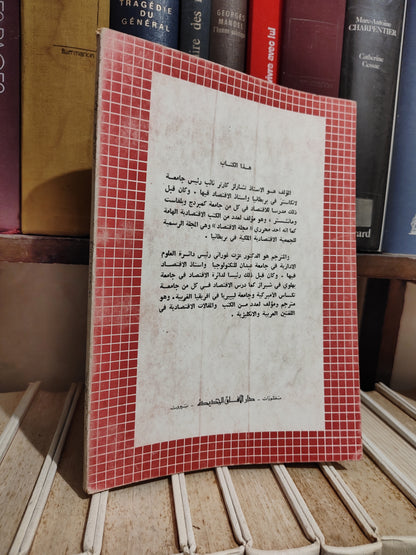 TRAGÉDIE
DU
GÉNÉRAL
flammarion
GEORGES
Marc-Antoine
CHARPENTIER
Catherine
Cessac
هذا الكتاب
المؤلف هو الاستاذ تشارلز كارتر نائب رئيس جامعة
لانكاستر في بريطانيا واستاذ الاقتصاد فيها . وكان قبل
ذلك مدرسا للاقتصاد في كل من جامعة كمبردج وبلفاست
ومانشستر ، وهو مؤلف لعدد من الكتب الاقتصادية الهامة
كما انه احد محرري « مجلة الاقتصاد » وهي المجلة الرسمية
للجمعية الاقتصادية الملكية في بريطانيا .
والمترجم هو الدكتور عزت غوراني رئيس دائرة العلوم
الادارية في جامعة تبدان للتكنولوجيا واستاذ الاقتصاد
فيها . وكان قبل ذلك رئيسا لدائرة الاقتصاد في جامعة
بهلوي في شيراز كما درس الاقتصاد في كل من جامعة
تكساس الاميركية وجامعة ليبيريا في افريقيا الغربية ، وهو
مترجم ومؤلف لعدد من الكتب والمقالات الاقتصادية في
اللغتين العربية والانكليزية .
منشورات - دار الآفاق الجديدة - بيروت